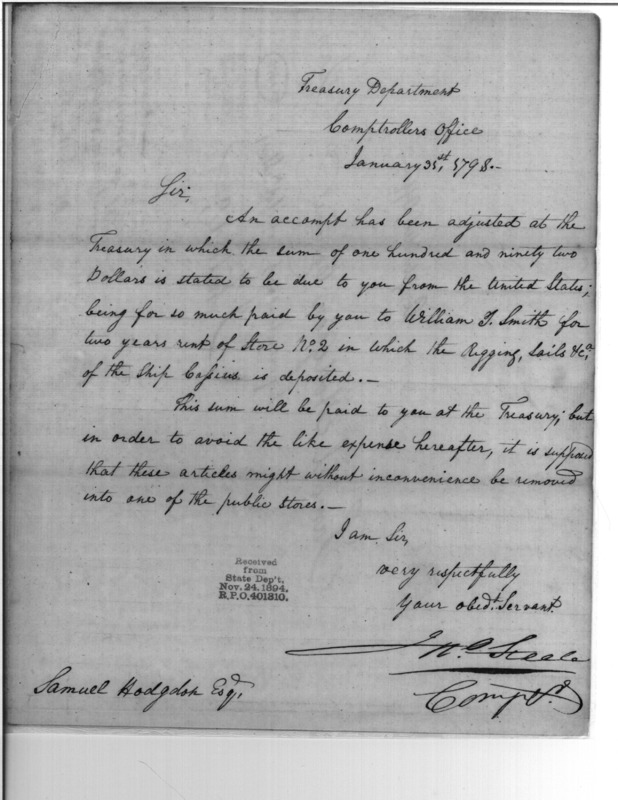 Treasury Department
Comptrollers Office
January 31st, 1798.-
Sir,
An accompt has been adjusted at the
Treasury in which the sum of one hundred and ninety two
Dollars is stated to be due to you from the United States;
being for so much paid by you to William T. Smith for
two years rent of Store No. 2 in which the Rigging, Sails &ca.
of the Ship Cassius is deposited. -
This sum will be paid to you at the Treasury; but
in order to avoid the like expense hereafter, it is supposed
that these articles might without inconvenience be removed
into one of the public stores. -
I am Sir,
very respectfully
Your obedt. Servant.
Jno. Steele
Comptr.
Received
from
State Dep't.
Nov. 24. 1894.
R.P.O. 401310.
Samuel Hodgdon Esqr,